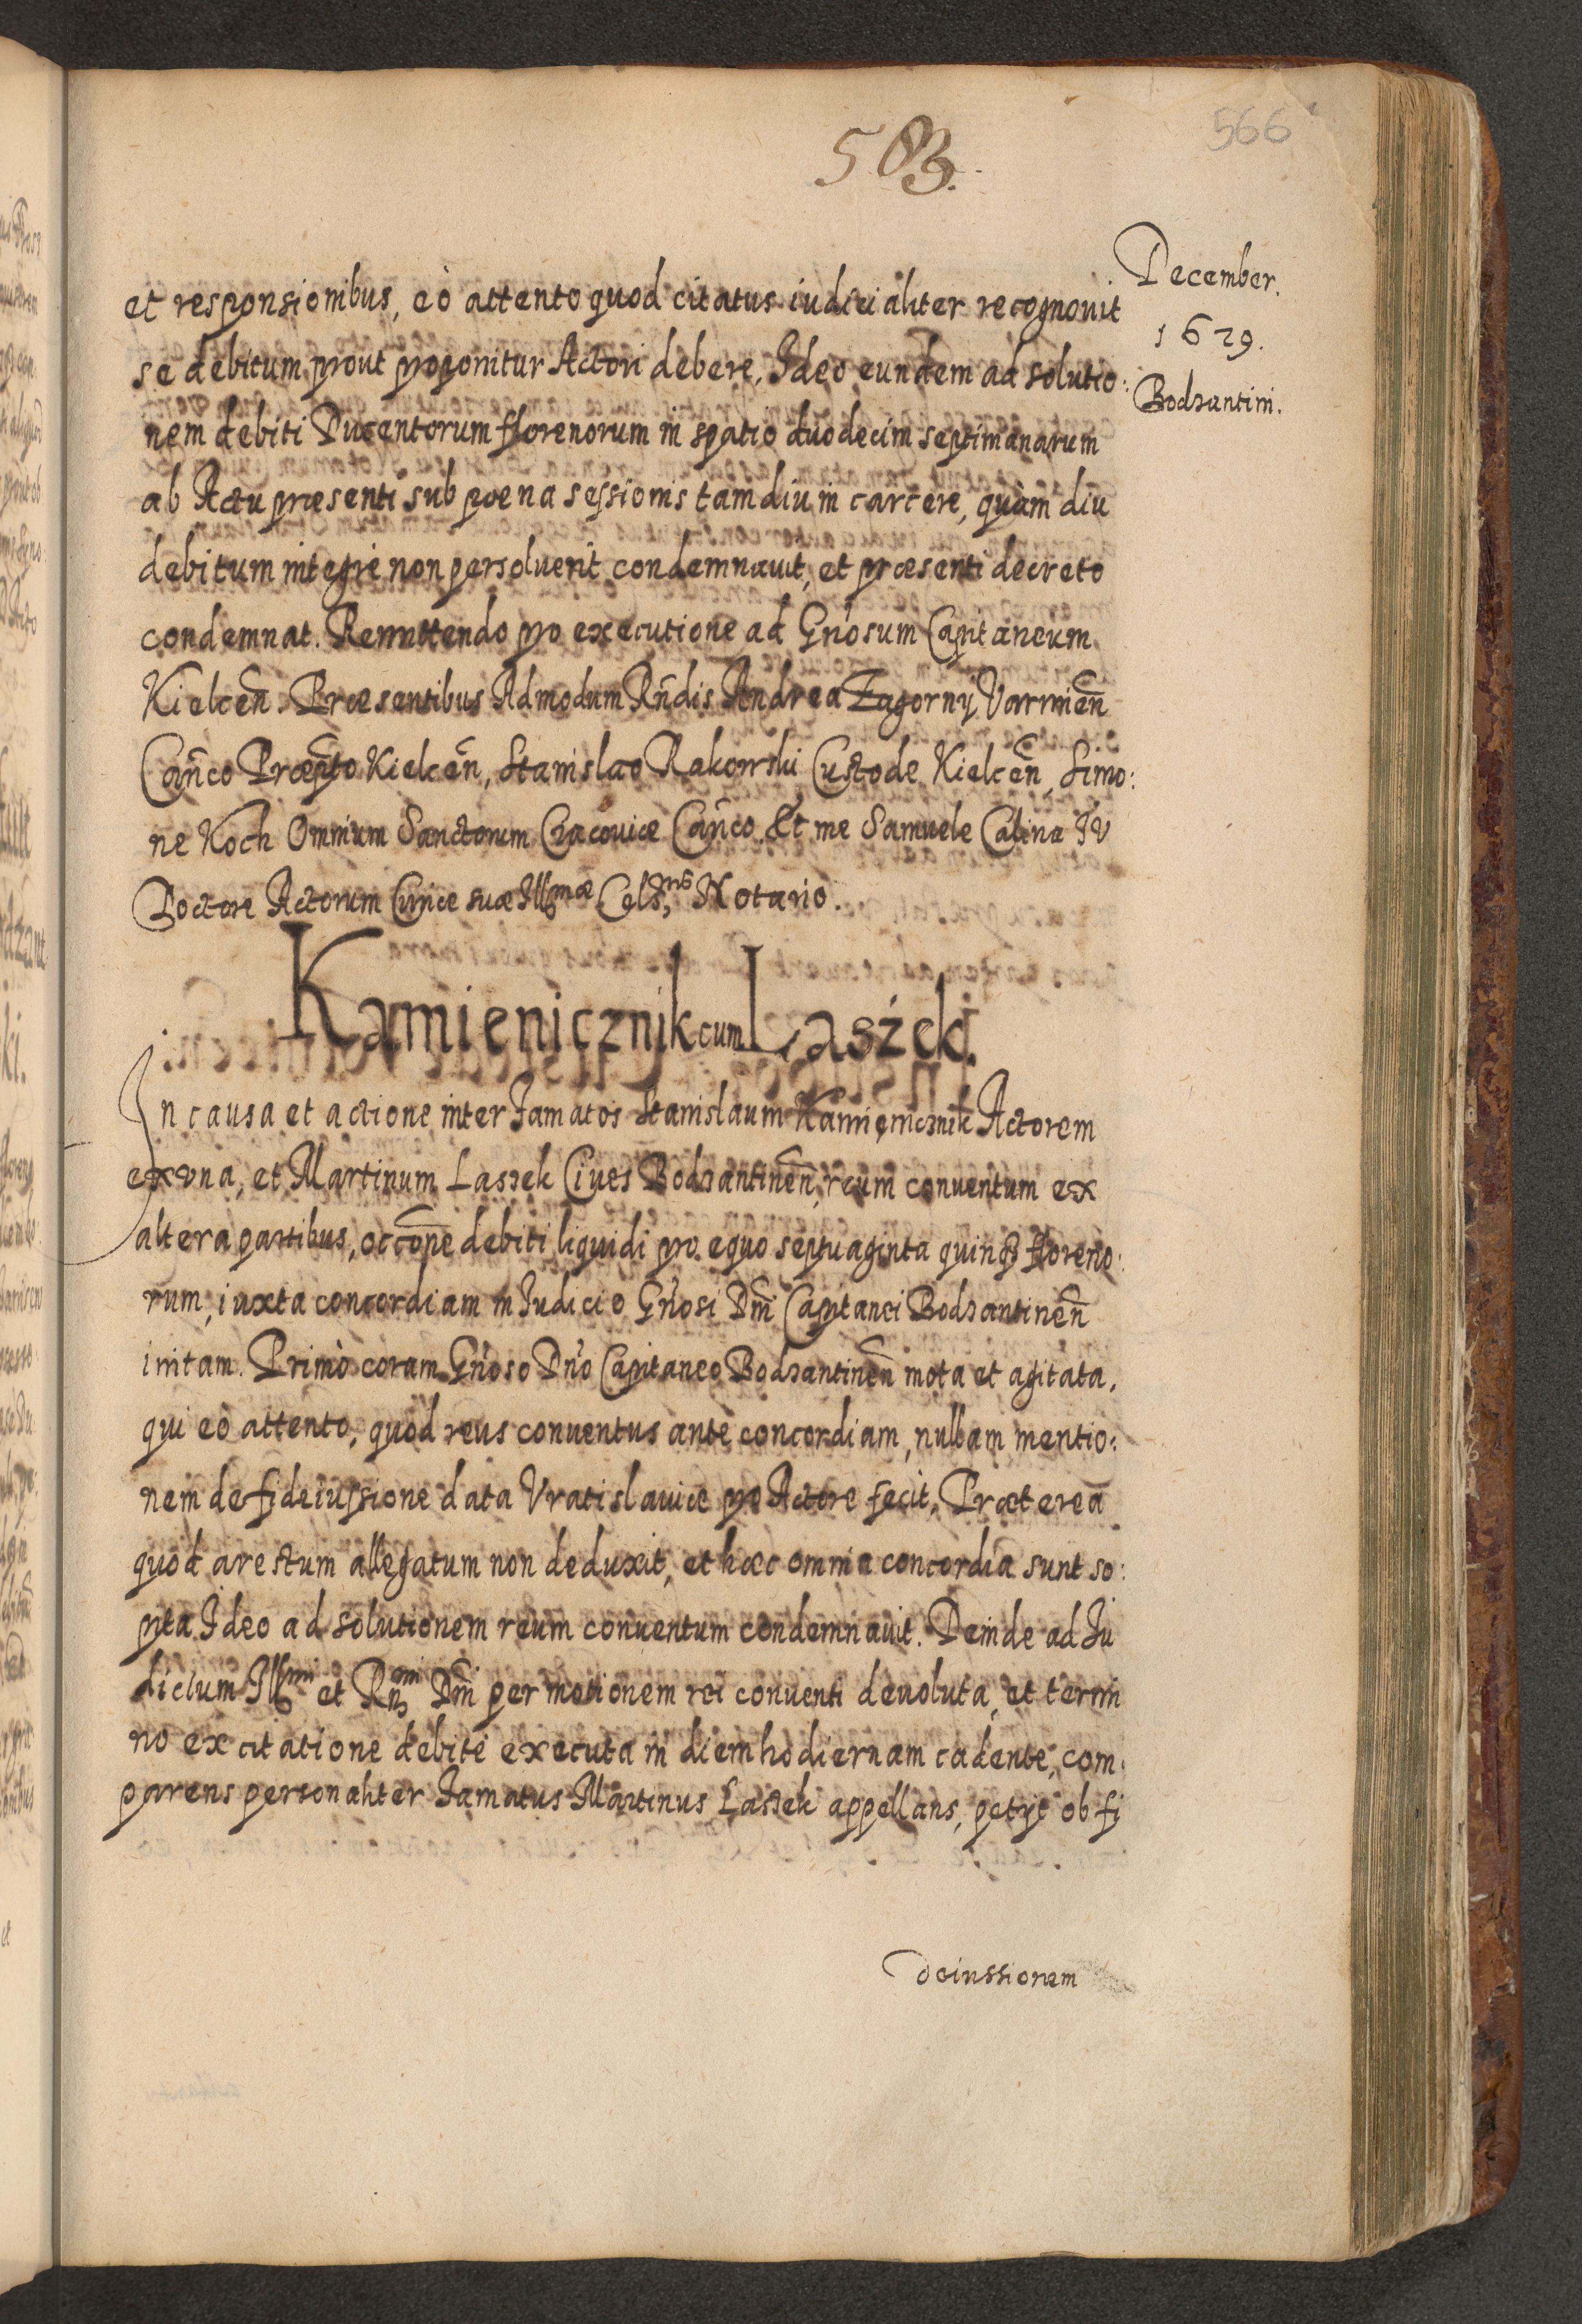 566
583.
December.
1629.
Bodzantini.
et responsionibus, eò attento quod citatus iudicialiter recognouit
se debitum prout proponitur Actori debere, Ideo eundem ad solutio:
nem debiti Ducentorum florenorum in spatio duodecim septimanarum
ab Actu præsenti sub poena sessionis tamdiu in carcere, quàm diu
debitum integrè non persoluerit condemnauit, et præsenti decreto
condemnat. Remittendo pro executione ad Gn̄osum Capitaneum
Kielceñ. Præsentibus Admodum Rñdis Andrea Zagorny Varmieñ
Cañco Præpto Kielceñ, Stanislao Rakowski Custode Kielceñ, Simo:
ne Koch Omnium Sanctorum Cracouiæ Cañco. Et me Samuele Calina IV
Doctore Actorum Curiæ suæ Illmæ Celsnis Notario.
Kamienicznik cum Laszek.
In causa et actione inter famatos Stanislaum Kamienicznik Actorem
ex vna, et Martinum Laszek Ciues Bodzantineñ, reum conuentum ex
altera partibus, occōne debiti liquidi pro equo septuaginta quinq3 floreno:
rum, iuxta concordiam in Iudicio Gn̄osi Dñi Capitanei Bodzantineñ
initam. Primò coram Gn̄oso Dn̄o Capitaneo Bodzantineñ mota et agitata,
qui eò attento, quòd reus conuentus ante concordiam, nullam mentio:
nem de fideiussione data Vratislauiæ pro Actore fecit, Præterea
quod arestum allegatum non deduxit, et hæc omnia concordia sunt so:
pita Ideo ad solutionem reum conuentum condemnauit. Deinde ad Iu
dicium Illmi et Rñmi Dñi per motionem rei conuenti deuoluta, et termi
no ex citatione debitè executa in diem hodiernam cadente, com:
parens personaliter famatus Martinus Laszek appellans, petijt ob fi
deiussionem